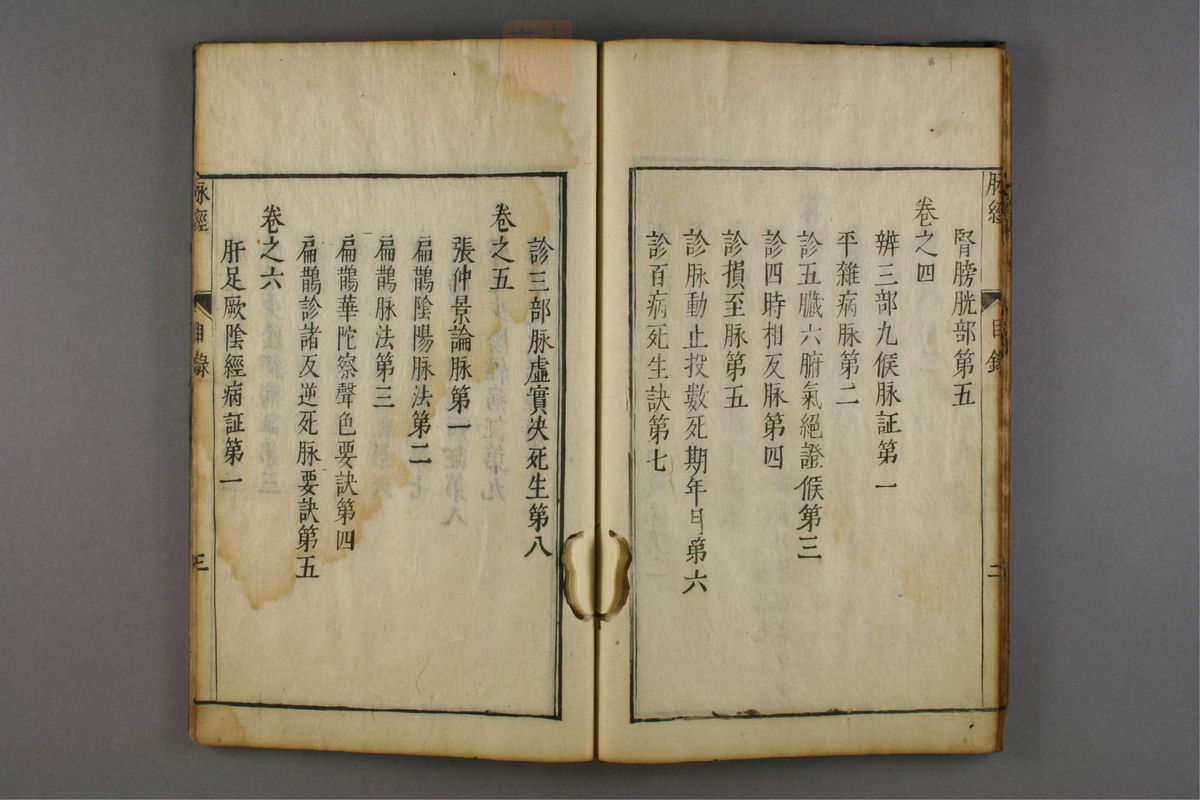 脉經
目錄
二
腎膀胱部第五
卷之四
辨三部九候脉証第一
平雜病脉第二
診五臟六腑氣絕證候第三
診四時相反脉第四
診損至脉第五
診脉動止投數死期年月第六
診百病死生訣第七
診三部脉虛實决死生第八
卷之五
張仲景論脉第一
扁鵲陰陽脉法第二
扁鵲脉法第三
扁鵲華陀察聲色要訣第四
扁鵲診諸反逆死脉要訣第五
卷之六
肝足厥陰經病証第一
脉經
目錄
三